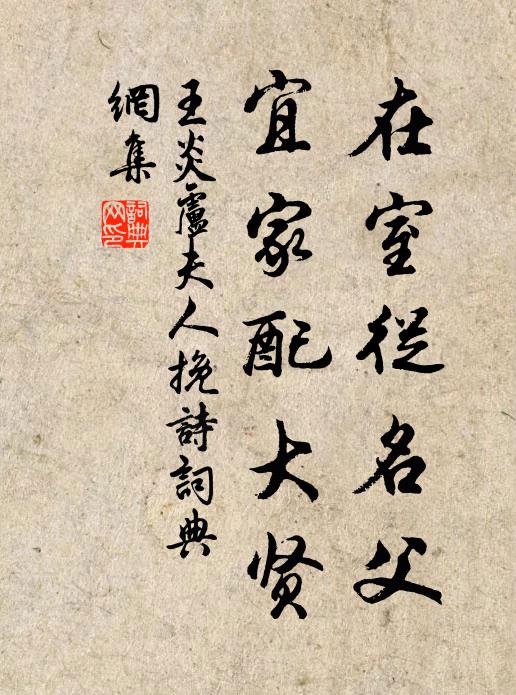 在室從名父
宜家配大贤
王炎盧夫人挽詩詞典
網集
詞典
网印